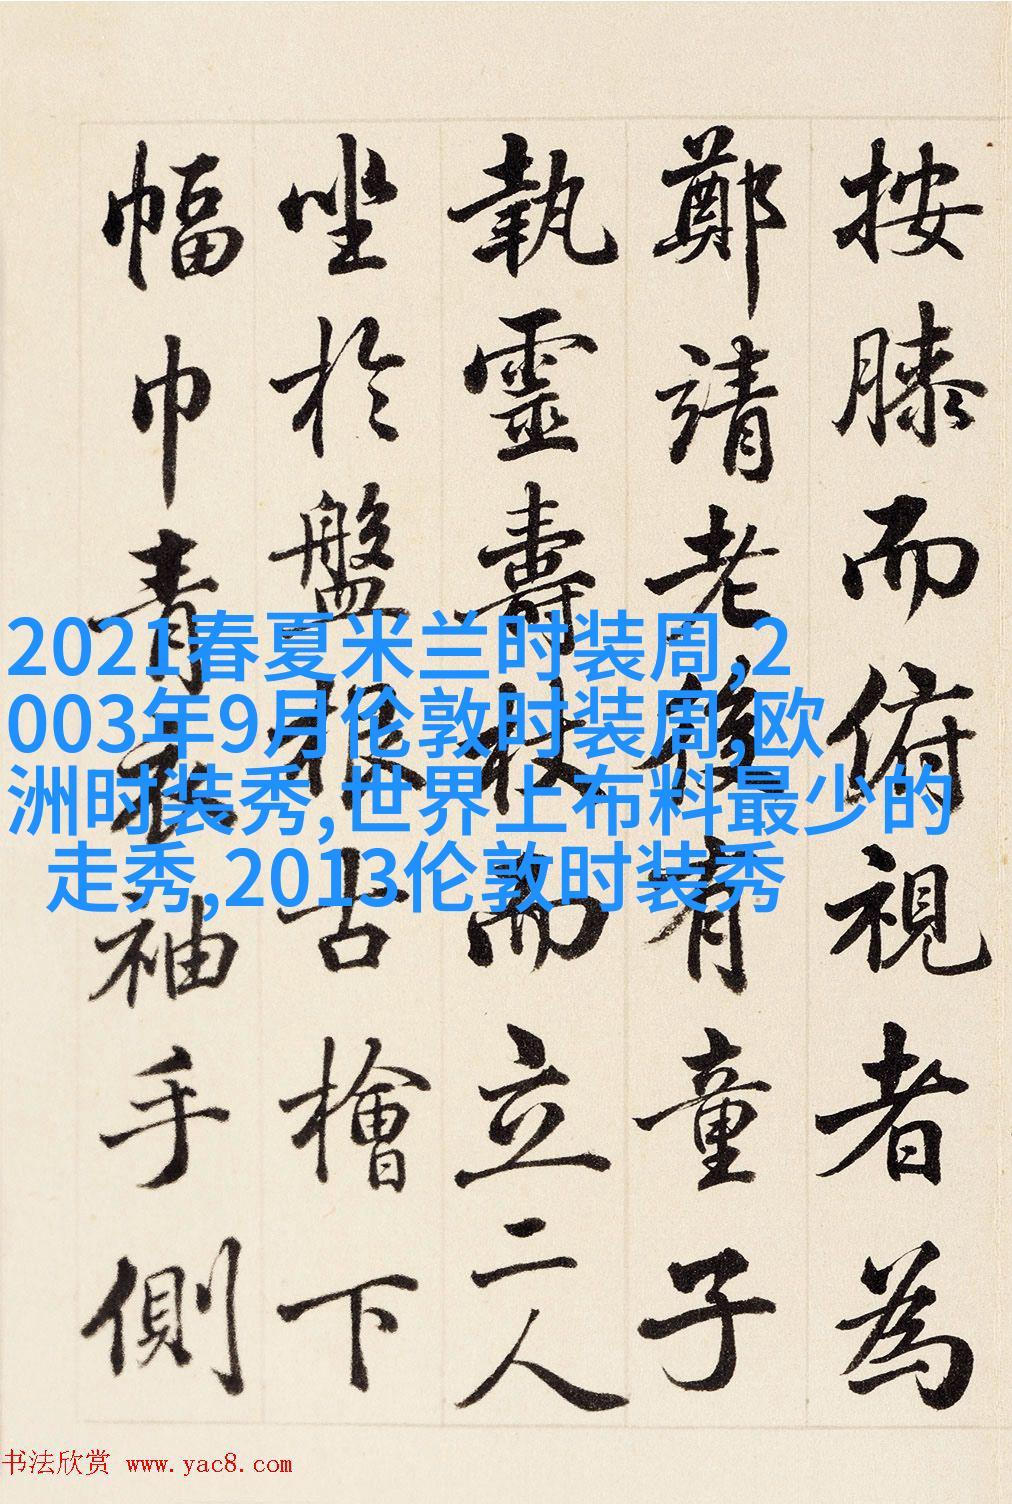 按膝而俯視者為
鄭靖老後有童子
執靈壽杖而立二人
坐於盤根古檜下
幅巾青衣袖手側
2021春夏米兰时装周,2
003年9月伦敦时装周,欧
洲时装秀,世界上布料最少的
走秀,2013伦敦时装秀
书法欣赏 www.yac8.com